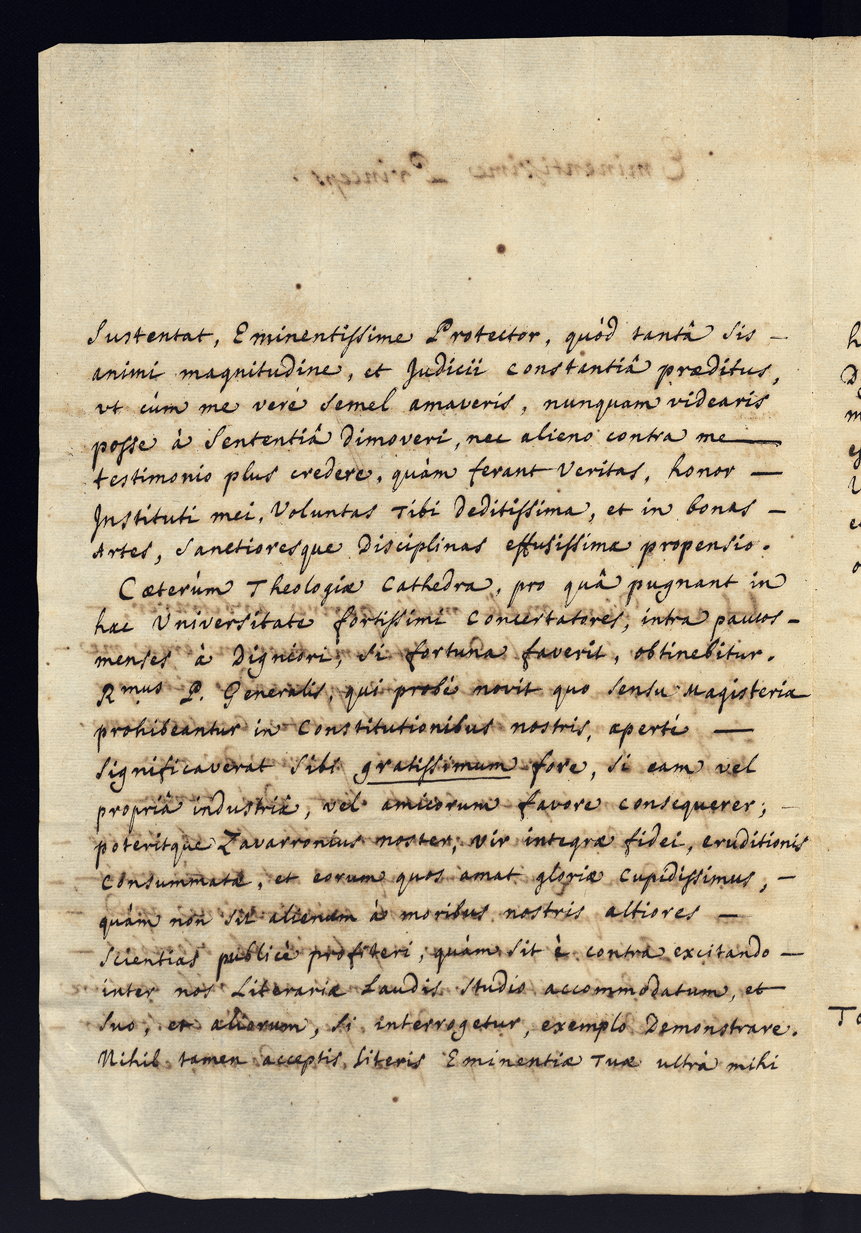 Sustentat, Eminentissime Protector, quòd tantâ sis —
animi magnitudine, et Judicii constantiâ præditus,
vt cùm me verè semel amaveris, nunquam videaris
posse à Sententiâ dimoveri, nec alieno contra me —
testimonio plus credere, quàm ferant Veritas, honor —
Instituti mei, Voluntas Tibi deditissima, et in bonas —
Artes, Sanctioresque Disciplinas effusissima propensio.
Cæterùm Theologiæ Cathedra, pro quâ pugnant in
hac Universitate fortissimi Concertatores, intra paucos —
menses à Digniori, si fortuna faverit, obtinebitur.
Rmus P. Generalis, qui probè novit quo sensu Magisteria
prohibeantur in Constitutionibus nostris, apertè —
significaverat sibi gratissimum fore, si eam vel
propriâ industriâ, vel amicorum favore consequerer; —
poteritque Zavarronius noster, vir integræ fidei, eruditionis
consummatæ, et eorum quos amat gloriæ cupidissimus, —
quàm non sit alienum à moribus nostris altiores —
Scientias publicè profiteri, quàm sit è contra excitando —
inter nos Literariæ Laudis studio accommodatum, et
suo, et alierum, si interrogetur, exemplo Demonstrare.
Nihil tamen acceptis literis Eminentiæ Tuæ ultrà mihi